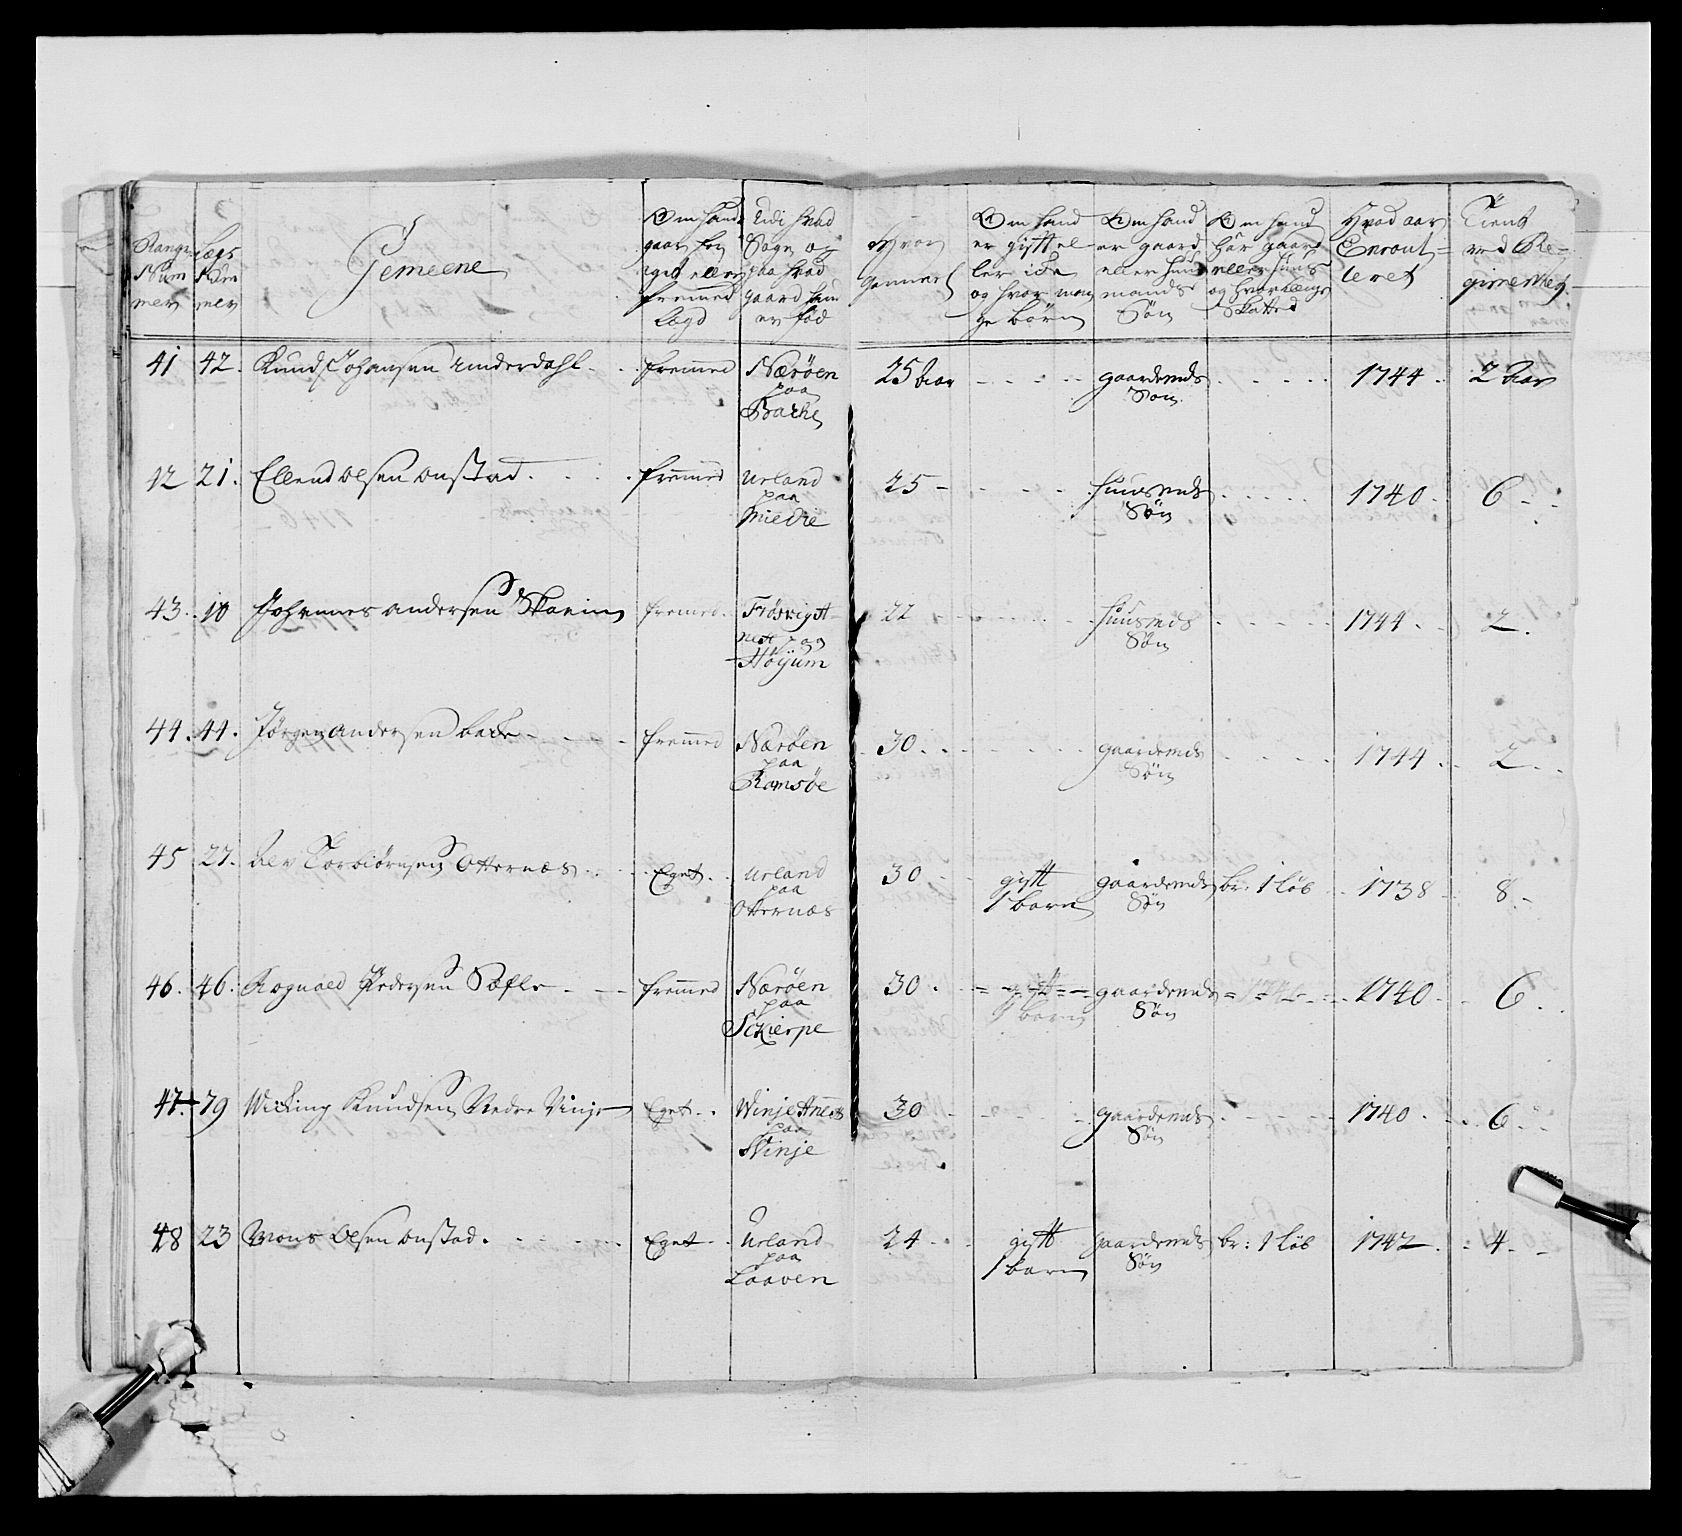 Rangs Num mer
Legs Num mer
Gemeene
Om hand gaar for Eget eller fremmed lægd
Udi hvad Sogn og paa hvad gaard hand er fød
Hvor Gammel
Om hand er gifft eller icke og hvor mange børn
Om hand er gaard eller huusmands Søn
Om hand har gaard eller huus og hvor længe skatted
Hvad aar Enroulleret
Tient ved Regimentet
41 42. Knud Johansen Underdahl. fremmed Nærøen paa Backe 25 aar gaardmds Søn 1744. 2 aar
42 21. Ellend Olsen Onstad. fremmed Urland paa Miedie 25 huusmds Søn 1740. 6
43. 10 Johannes Andersen Skarim fremed. Frøsvig paa Høyum 22 huusmds Søn 1744. 2.
44. 44. Jørgen Andersen Backe fremmed Nærøen paa Ramsøe 30. gaardmds Søn 1744. 2.
45 27. Torbiørnsen Otternæs Eget. Urland paa Otternæs 30 gifft 1 barn gaardmds Søn br: 1 løb 1738 8.
46. 46. Rognald Pedersen fremmed Nærøen paa Sckierpe 30. gifft 1 barn gaardmds Søn 1740 6.
47. 79 Wicking Knudsen Nedre Vinje Eget. Winje Annex paa Winje 30 gaardmds Søn 1740. 6.
48 23 Mons Olsen Onstad. Eget Urland paa Laaven 24 gifft 1 barn gaardmds Søn br: 1 løb 1742. 4.